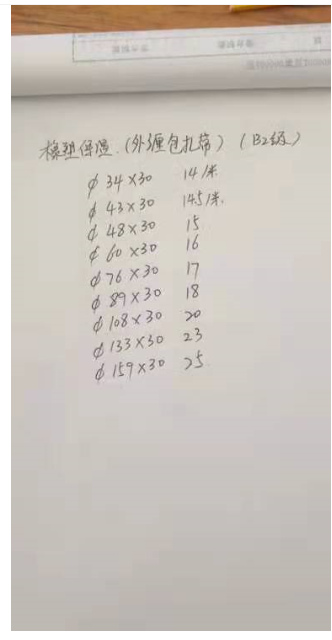 橡塑保温.(外缠包扎带)(B2级)
φ34×30 14/米
φ43×30 14.5/米.
φ48×30 15
φ60×30 16
φ76×30 17
φ89×30 18
φ108×30 20
φ133×30 23
φ159×30 25